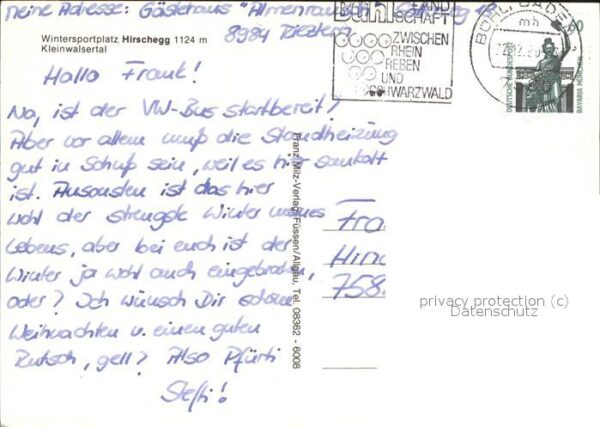 meine Adresse: Gästehaus "Almenrausch"
8984 Riezlern
Wintersportplatz Hirschegg 1124 m
Kleinwalsertal
Hallo Frank!
Na, ist der VW-Bus startbereit?
Aber vor allem muß die Standheizung
gut in Schuß sein, weil es hier saukalt
ist. Ansonsten ist das hier
wohl der strengste Winter meines
Lebens, aber bei euch ist der
Winter ja wohl auch eingebrochen,
oder? Ich wünsch Dir schöne
Weihnachten u. einen guten
Rutsch, gell? Also Pfürti
Steffi!
Franz Milz-Verlag Füssen/Allgäu, Tel. 08362 - 6008
Fra
Hin
758
BÜHL
LAND
SCHAFT
ZWISCHEN
RHEIN
REBEN
UND
SCHWARZWALD
BÜHL, BADEN
mh
60
DEUTSCHE BUNDESPOST
BAVARIA MÜNCHEN
privacy protection (c)
Datenschutz